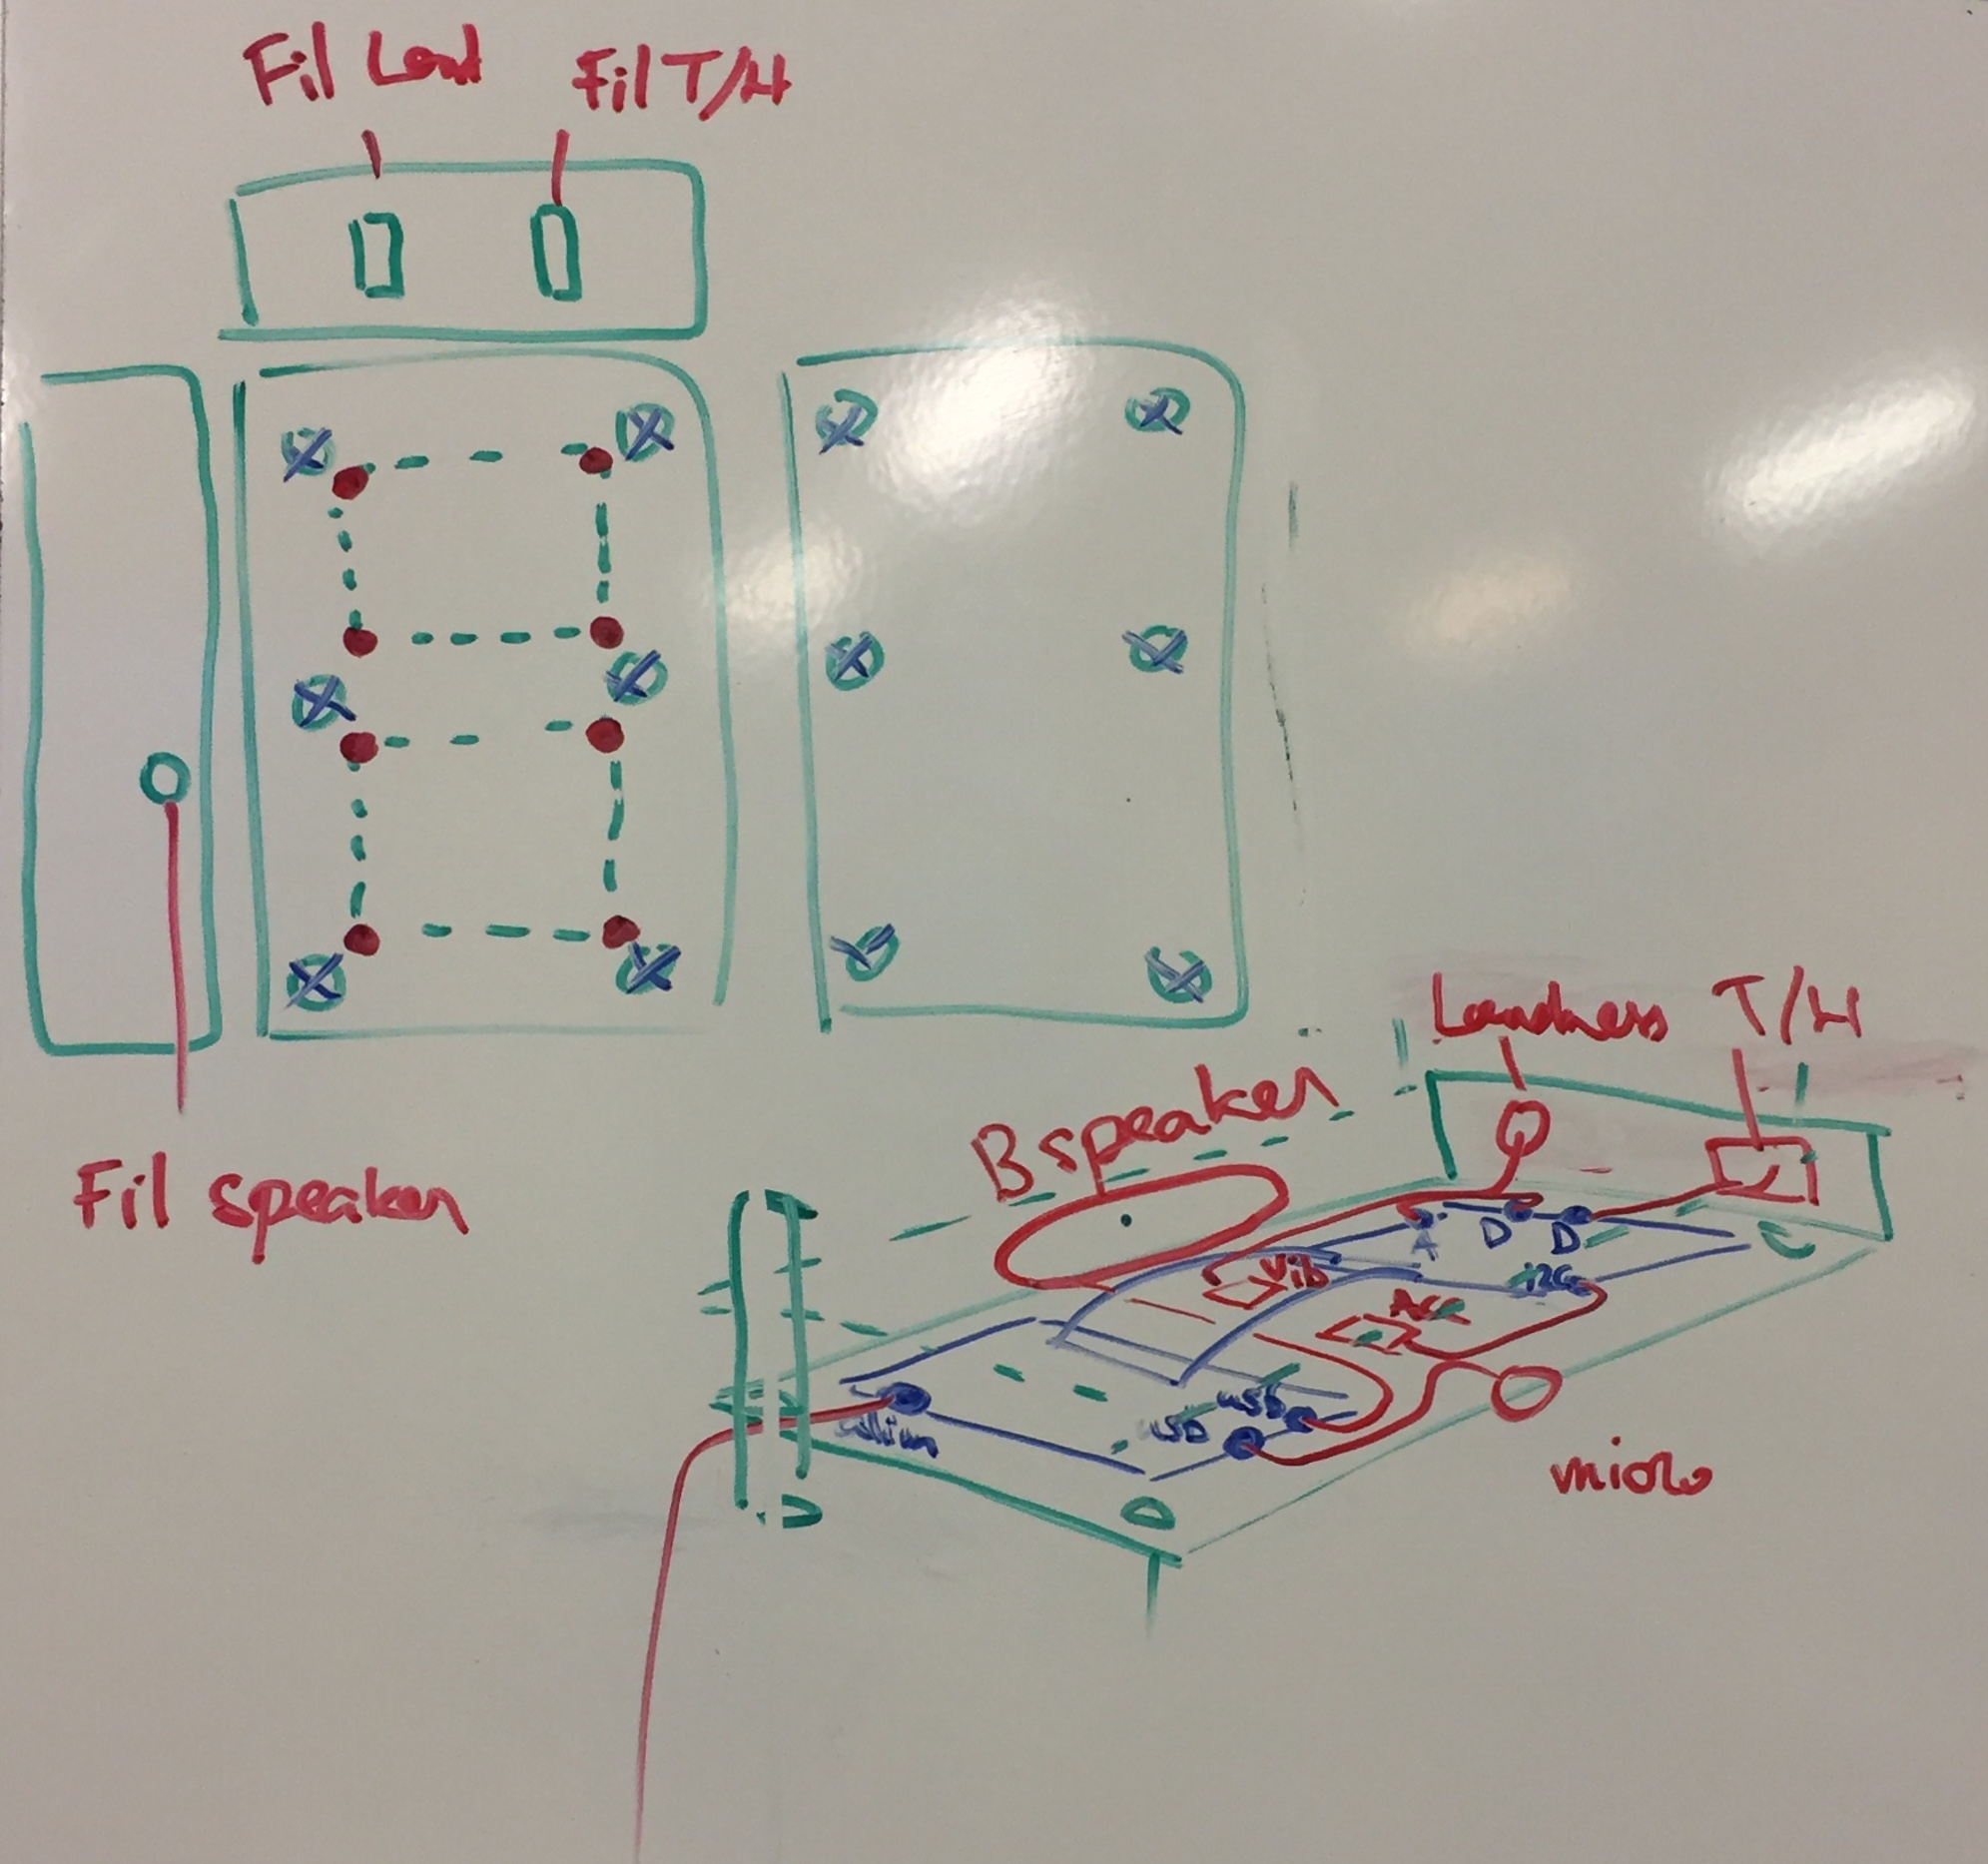 Fil Loud
Fil T/H
Fil speaker
Loudness
T/H
B speaker
A
D
D
Vib
i2c
Acc
usb
USD
alim
micro